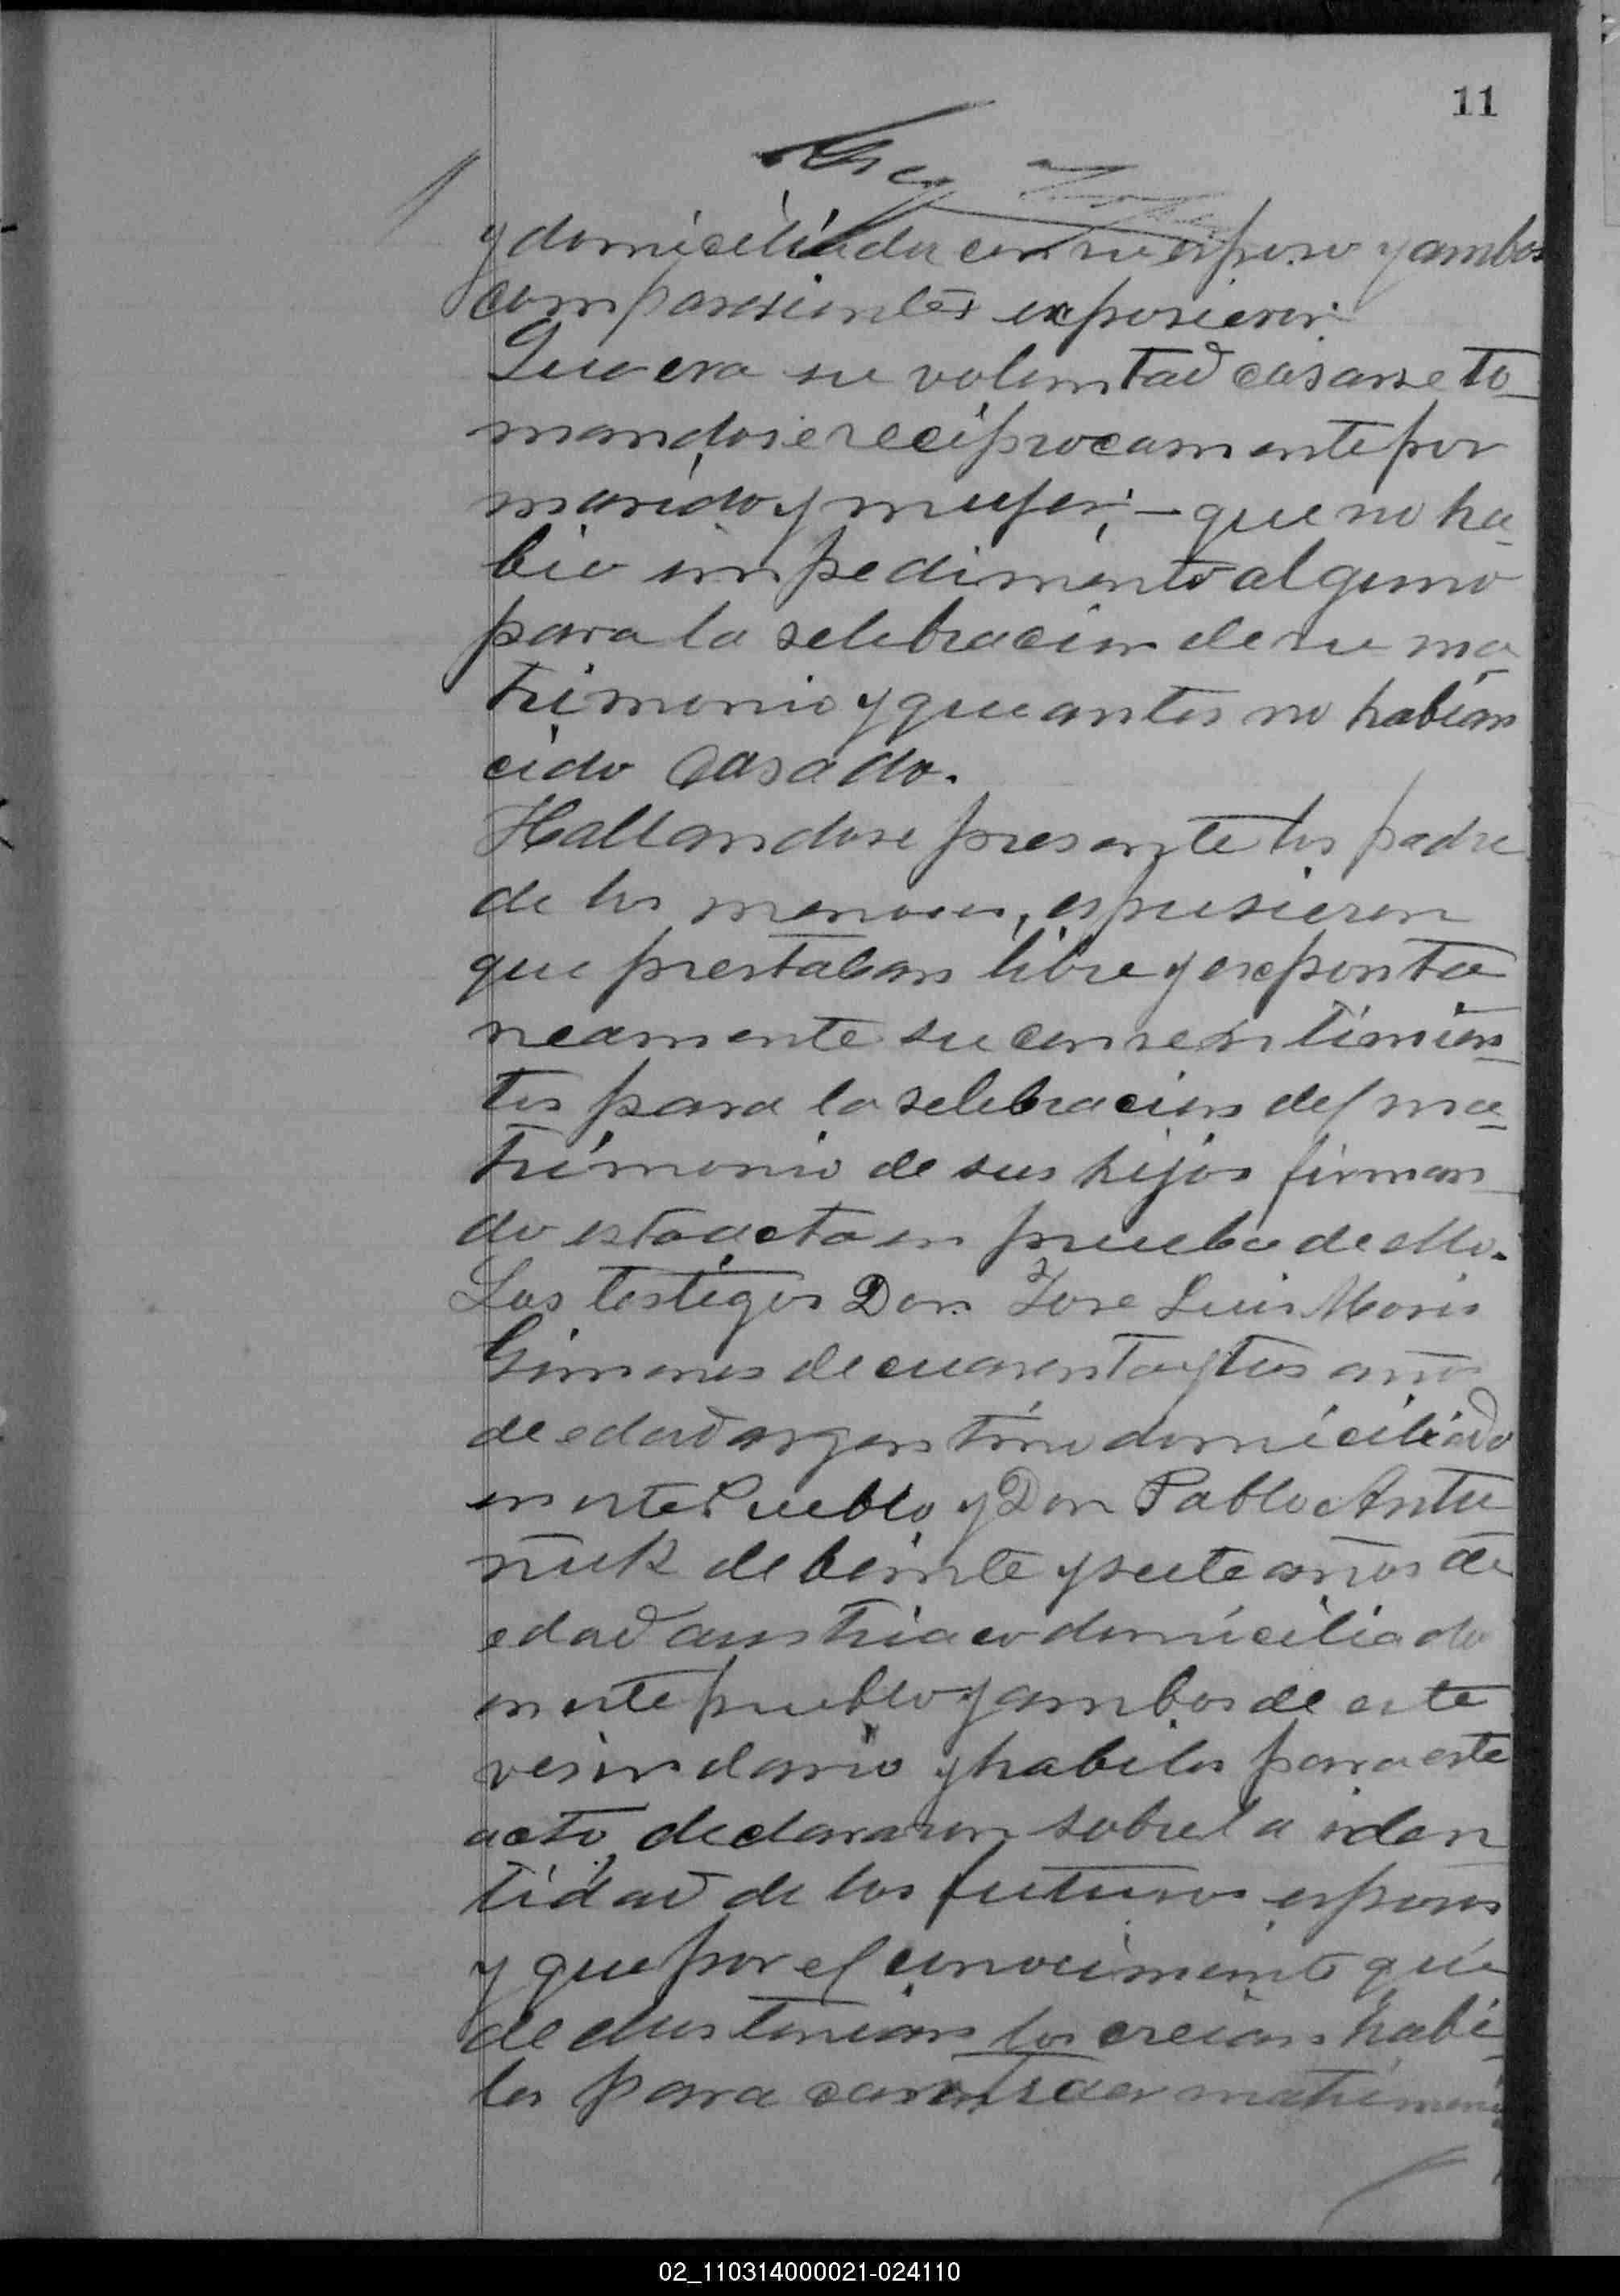 11
y domiciliada con su esposo y ambos
comparesientes exposieron:
Que era su voluntad casarse to-
mandose reciprocamente por
marido y mujer; — que no ha-
bia impedimento alguno
para la selebracion de su ma-
trimonio y que antes no habian
cido Casado.
Hallandose presente los padre
de los menores, espusieron
que prestaban libre y exponta
neamente su consentimien-
tos para la selebracion del ma-
trimonio de sus hijos firman-
do esta acta en prueba de ello.
Los testigos Don Jose Luis Moris
Gimenes de cuarenta y tres años
de edad argentino domiciliado
en este Pueblo y Don Pablo Antu
ñuk de beinte y siete años de
edad austriaco domiciliado
en este pueblo y ambos de este
vesindario y habiles para este
acto, declararon sobre la iden
tidad de los futuros esposos
y que por el conocimiento que
de ellos tenian los creian habi-
les para contraer matrimonio
02_110314000021-024110